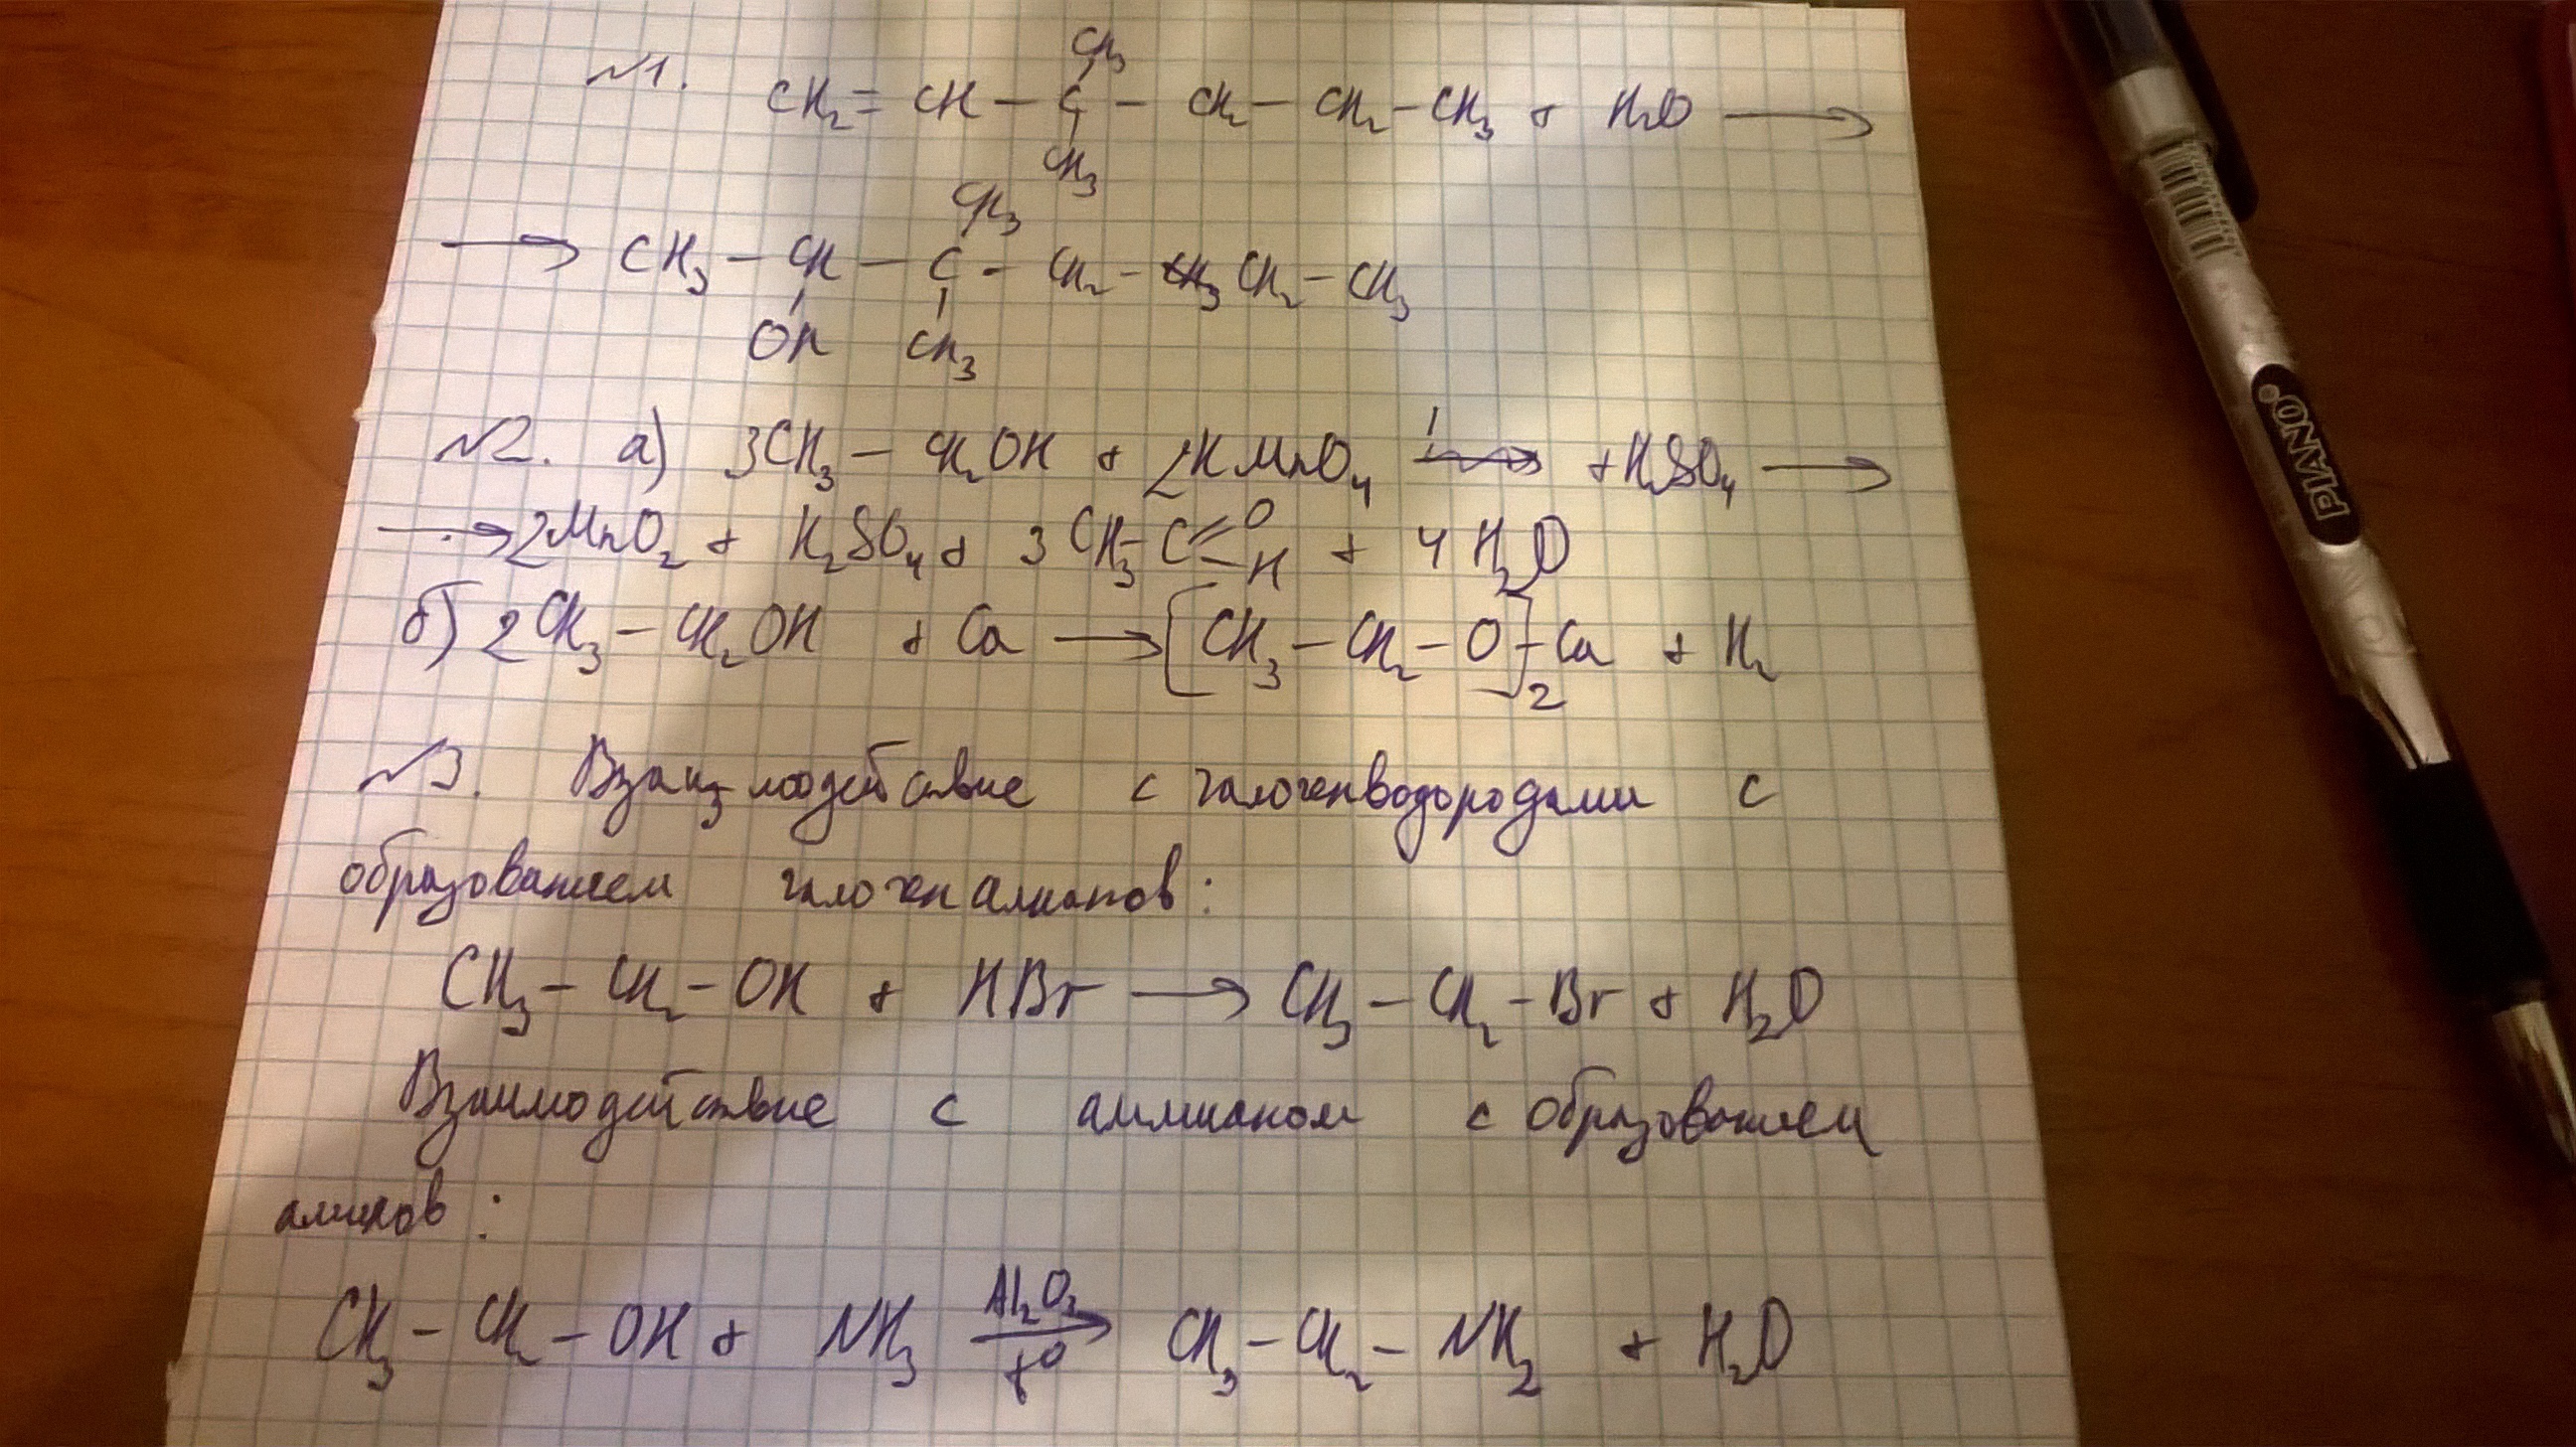 №1. CH₂ = CH — C — CH₂ — CH₂ — CH₃ + H₂O ⟶
CH₃
CH₃
⟶ CH₃ — CH — C - CH₂ - CH₂ - CH₃
CH₃
OH CH₃
№2. а) 3CH₃ — CH₂OH + 2KMnO₄ + H₂SO₄ ⟶
⟶ 2MnO₂ + K₂SO₄ + 3CH₃-C=O-H + 4H₂O
б) 2CH₃ — CH₂OH + Ca ⟶ [CH₃ — CH₂ — O]₂-Ca + H₂
№3. Взаимодействие с галогенводородами с
образованием галогеналканов:
CH₃ — CH₂ — OH + HBr ⟶ CH₃ — CH₂ - Br + H₂O
Взаимодействие с аммиаком с образованием
аминов:
Al₂O₃
CH₃ — CH₂ — OH + NH₃ ⟶ CH₃ — CH₂ — NH₂ + H₂O
t⁰
PIANO